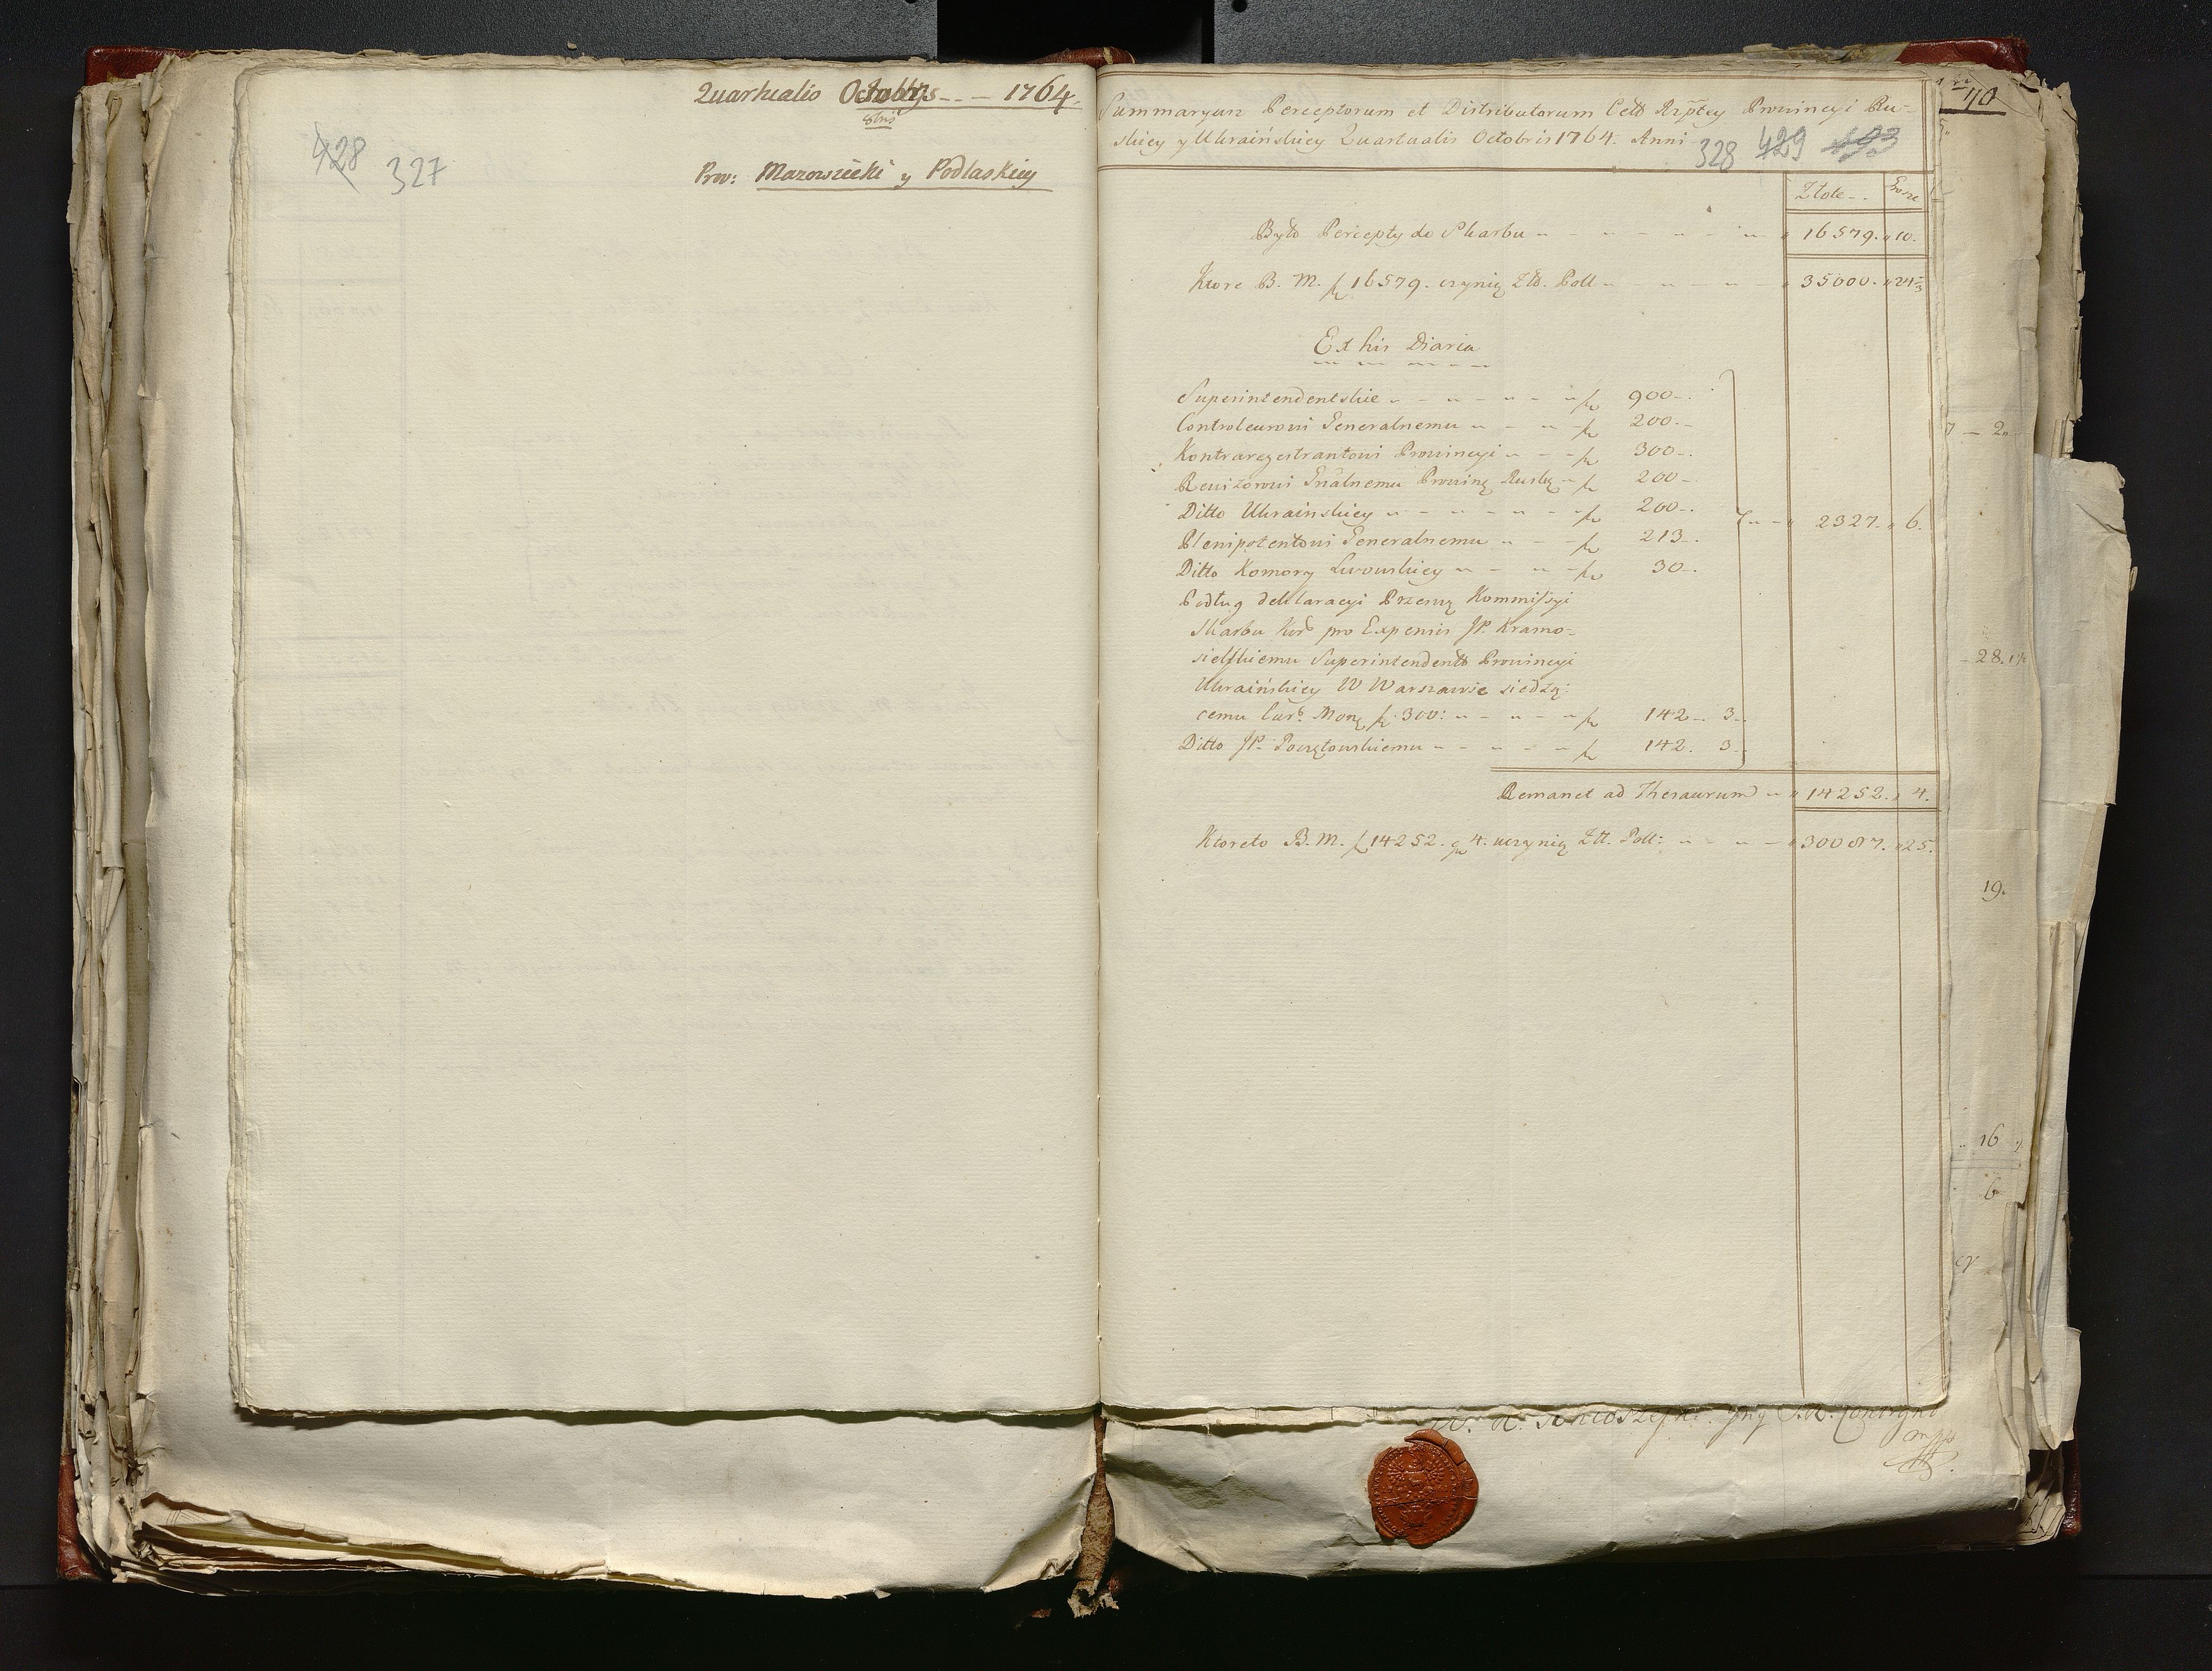 Quartualis Octobris -- 1764.
8bris
428 327
Prow: Mazowieckì y Podlaskiey
Summaryusz Perceptorum et Distributorum Cełł Rzptey Prowincyi Ru-
skiey y Ukraińskiey Quartualis Octobris 1764. Anni
328 429 493
Złote -. Grosze
Było Percepty do Skarbu 16579. 10.
Ktore B. M. f 16579. czynią Złł. Poll 35000. 24 1/3
Ex his Diaria
Superintendentskie 900-.
Controleurowi Generalnemu 200.-
Kontraregestrantowi Prowincyi 300-.
Rewizorowi Gnalnemu Prowinę Ruskę 200-
Ditto Ukrainskiey 200-.
Plenipotentowi Generalnemu 213-.
Ditto Komory Lwowskiey 30-.
2327. 6.
Podług deklaracyi Przesw Kommissyi
Skarbu Kor pro Expensis JP. Kramo-
sielskiemu Superintendentt Prowincyi
Ukraińskiey W Warszawie siedzą:
cemu Curr. Monę f 300: 142.. 3-.
Ditto JP. Poczętowskiemu 142. 3-
Remanet ad Thesaurum 14252. 4.
Ktoreto B. M. f 14252. gr 4. uczynią Złł. Poll: 30087. 25.
70
2
28.
19.
16
6